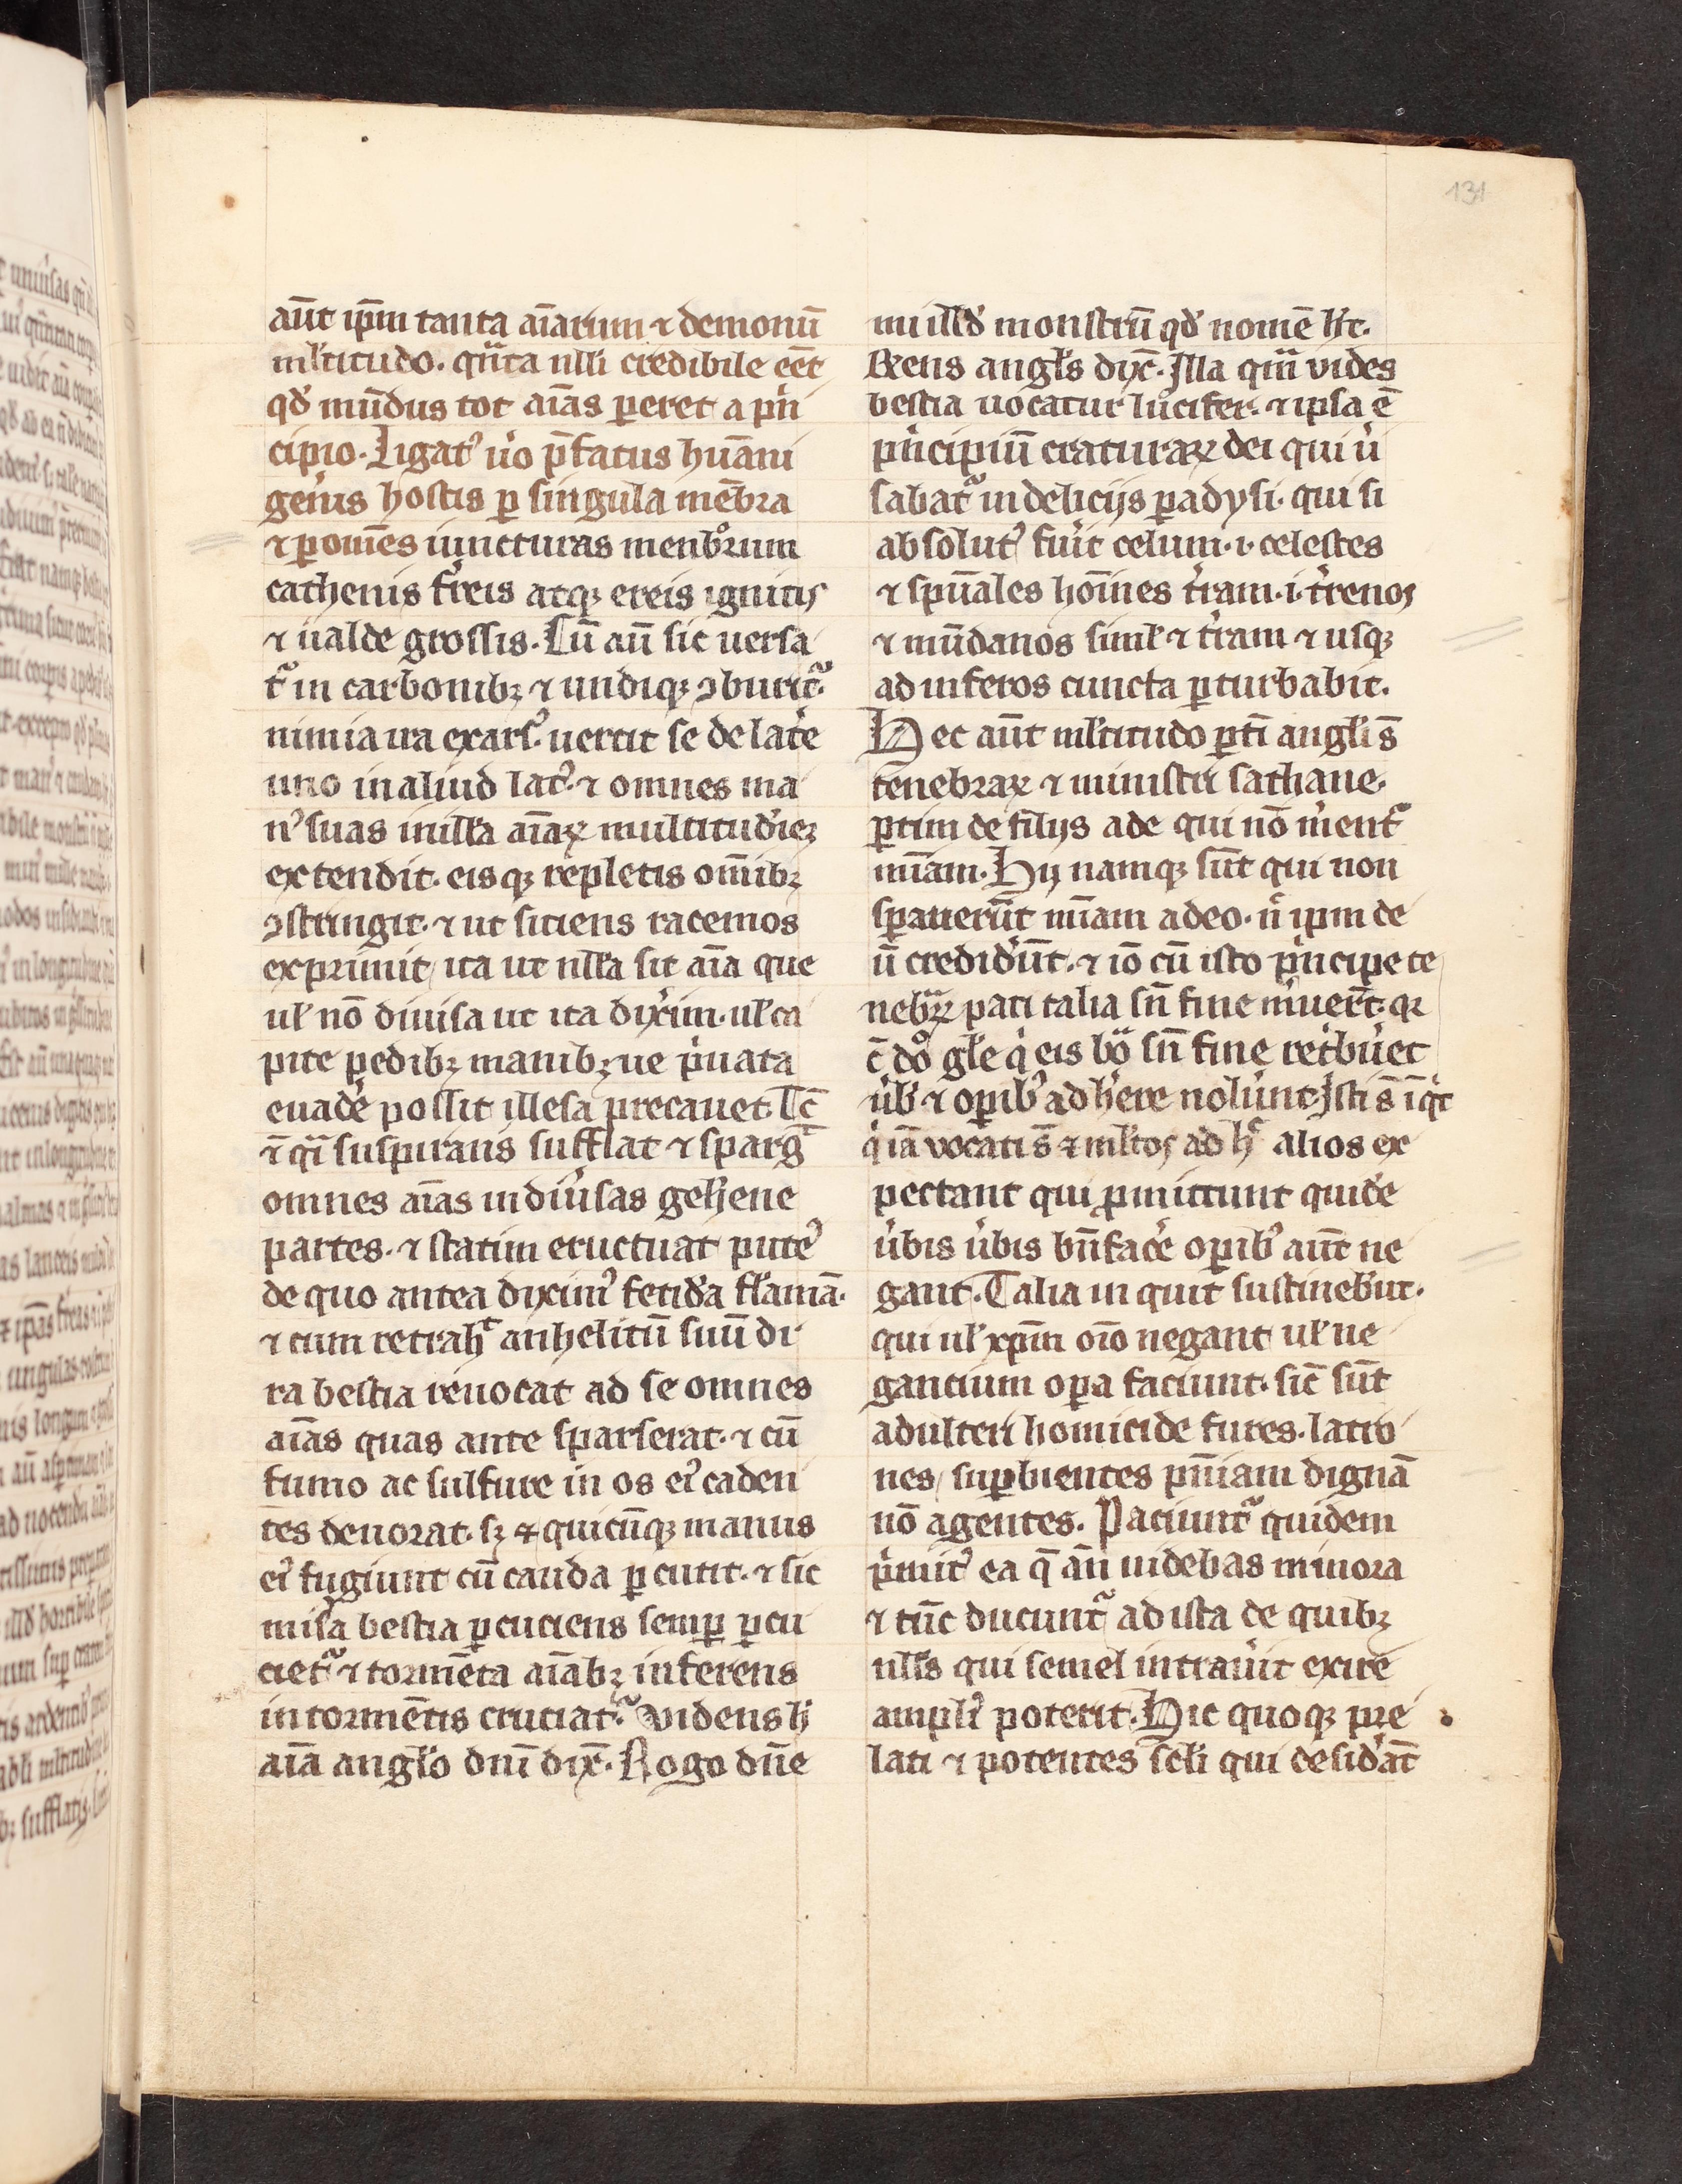 131
aūt ip̄m tanta aīarum ⁊ demonū
ml̄titudo. qūta nlli credibile eēt
qd̓ mūdus tot aīas peret a pͥn
cipio. Ligat᷒ ů̓o p̄fatus hūani
gen̓is hostis ꝑ singula mēbra
⁊ ꝑ om̄es iuncturas menbrͦrum
cathenis fr̓eis atqꝫ ereis ignitis
⁊ ualde grossis. Cū aū sic uersa
tᷣ in carbonibꝫ ⁊ undiqꝫ ꝯburitᷣ.
nimia ira exars᷒. uertit se de lat̓e
uno in aliud lat᷒. ⁊ omnes ma
n᷒ suas in illa aīaꝝ multitud̓ieꝫ
extendit. eisqꝫ repletis om̄ibꝫ
ꝯstringit. ⁊ ut siciens racemos
exprimit / ita ut nll̓a sit aīa que
ul̓ nō diuisa ut ita dixͥim. ul̓ ca
pite pedibꝫ manibꝫue pͥuata
euad̓e possit illesa precauet. Tc̄
⁊ qͥ suspirans sufflat ⁊ spargͭ
omnes aīas in diu̓sas gehene
partes. ⁊ statim eructuat pute᷒
de quo antea dixim᷒ fetid̓a flamā.
⁊ cum retrahͭ anhelitū suū di
ra bestia reuocat ad se omnes
aīas quas ante sparserat. ⁊ cū
fumo ac sulfure in os ei᷒ caden
tes deuorat. sꝫ ⁊ quicūqꝫ manus
ei᷒ fugiunt cū cauda ꝑcutit. ⁊ sic
mis̓a bestia ꝑcuciens semꝑ ꝑcu
cietᷣ ⁊ tormēta aīabꝫ inferens
in tormētis cruciatᷣ. Videns h̓
aīa angl̓o dn̄i dix̄. Rogo dn̄e
mi illd̓ monstrū qd̓ nomē h̓t.
Rx̄ens angl̓s dyx̄. Illa qͣm vides
bestia uocatur lucifer. ⁊ ipsa ē
pͥncipiū craturaꝝ dei qui u̓
sabatᷣ in delicijs ꝑadysi. qui si
absolut᷒ fu̓it celum .i. celestes
⁊ spūales hoīnes tr̓am .i. tr̓enos
⁊ mūdanos simł ⁊ tr̓am ⁊ usqꝫ
ad inferos cuncta ꝑturbabit.
Hec aūt ml̓titudo ꝑtī angl̓i s̄
tenebraꝝ ⁊ ministri sathane.
ꝑtim de filijs ade qui nō m̓entᷣ
mīam. Hij namqꝫ sūt qui non
sꝑauerūt mīam a deo. n̓ ipm de
ū credid̓ūt. ⁊ iō cū isto pͥncipe te
nebꝝ pati talia sn̄ fine m̓uer̄t. qꝛ
c̄ dō gl̓e qͥ eis bͣ sn̄ fine ret̓bu̓et
u̓b̓ ⁊ oꝑib᷒ adh̓ere nolu̓nt. Isti s̄ iqͥt
qͥ iā vocati s̄ ⁊ ml̓tos ad hͨ alios ex
pectant qui ꝓmittunt quid̓e
u̓bis u̓bis bn̄fac̓e oꝑib᷒ aūt ne
gant. Talia inquit sustineb̓ūt.
qui ul̓ xp̄m oīo negant ul̓ ne
gancium oꝑa faciunt. sic̄ sūt
adulteri homicide fures. latro
nes / suꝑbientes pn̄iam dignā
nō agentes. Paciuntᷣ quidem
pͥmit᷒ ea q̄ an̄ uidebas minora
⁊ tūc ducuntᷣ ad ista de quibꝫ
nll̓s qui semel intrau̓it exire
ampli᷒ poterit. Hic quoqꝫ pre
lati ⁊ potentes scl̓i qui desid̓āt